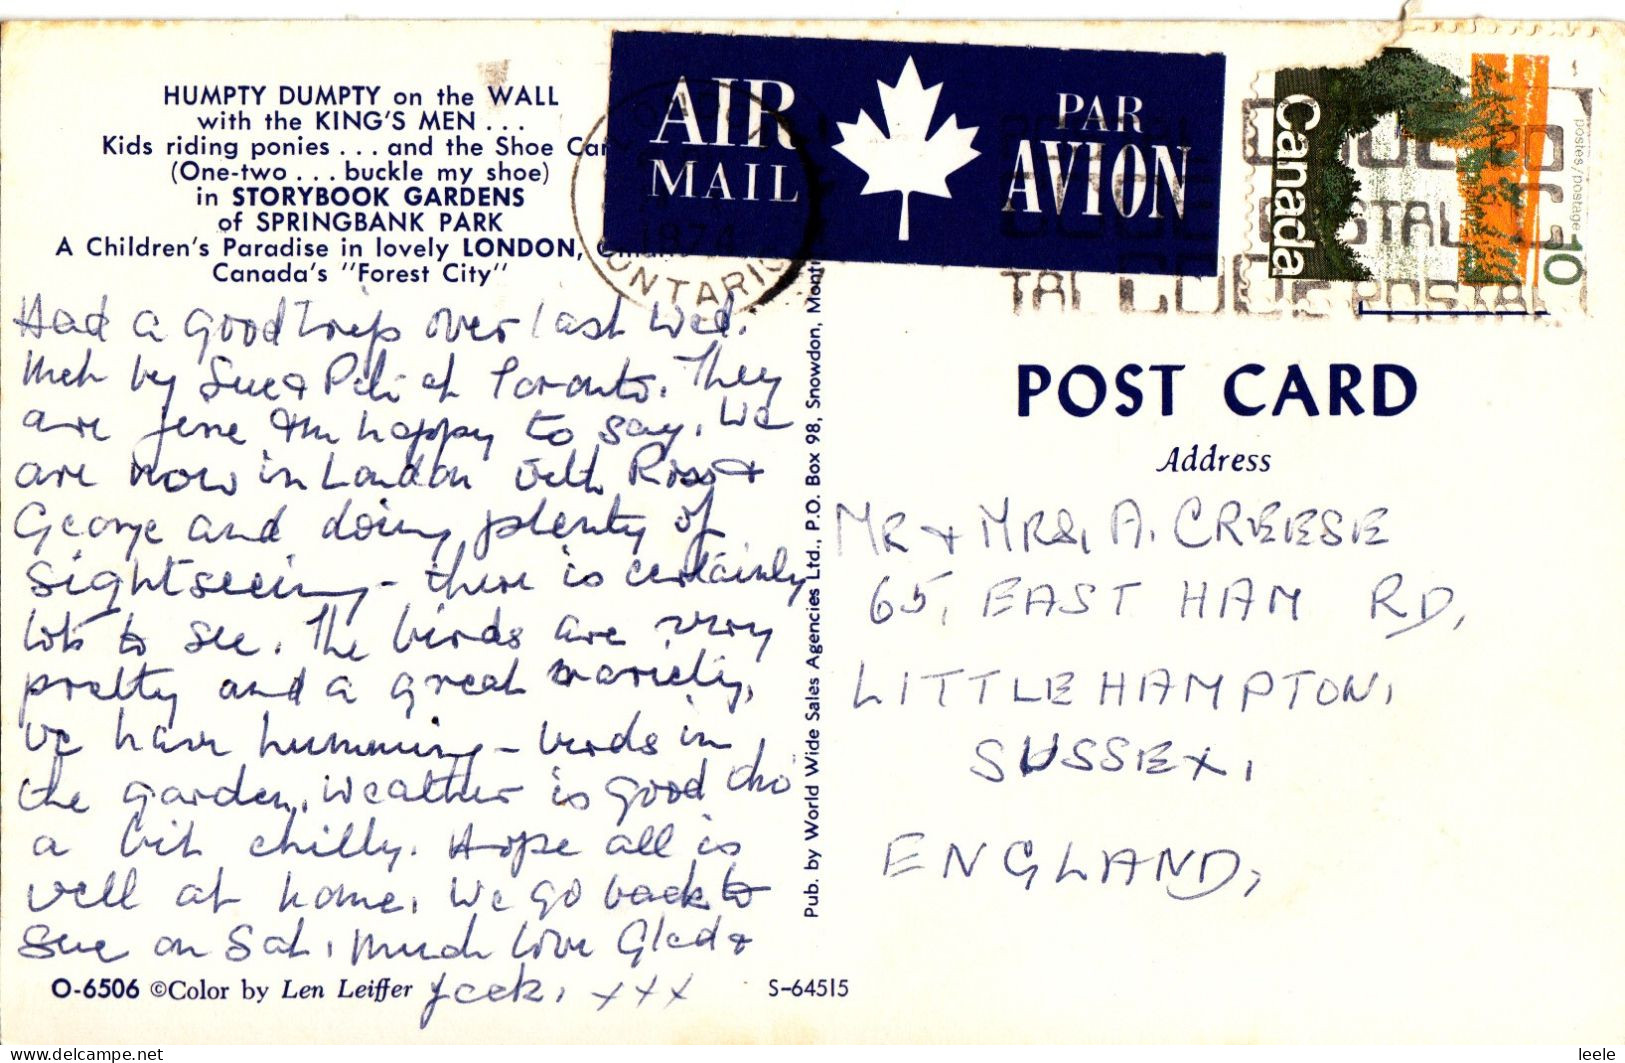 HUMPTY DUMPTY on the WALL
with the KING'S MEN . . .
Kids riding ponies . . . and the Shoe Car
(One-two . . . buckle my shoe)
in STORYBOOK GARDENS
of SPRINGBANK PARK
A Children's Paradise in lovely LONDON,
Canada's "Forest City"
Had a good trip over last Wed.
Met by Sue & Pete at Toronto. They
are fine I'm happy to say. We
are now in London with Ross &
George and doing plenty of
sightseeing - there is certainly
lots to see. The birds are very
pretty and a great variety,
we have humming-birds in
the garden. Weather is good tho'
a bit chilly. Hope all is
well at home. We go back to
Sue on Sat. Much love Glad &
Jack. xxx
O-6506 ©Color by Len Leiffer
S-64515
Pub. by World Wide Sales Agencies Ltd., P.O. Box 98, Snowdon, Mont
AIR MAIL
PAR AVION
1974
ONTARIO
Canada
postes/postage
10
POSTAL
CODE
POSTAL
POST CARD
Address
MR & MRS, A. CREESE
65, EAST HAM RD,
LITTLEHAMPTON,
SUSSEX,
ENGLAND,
leele
delcampe.net